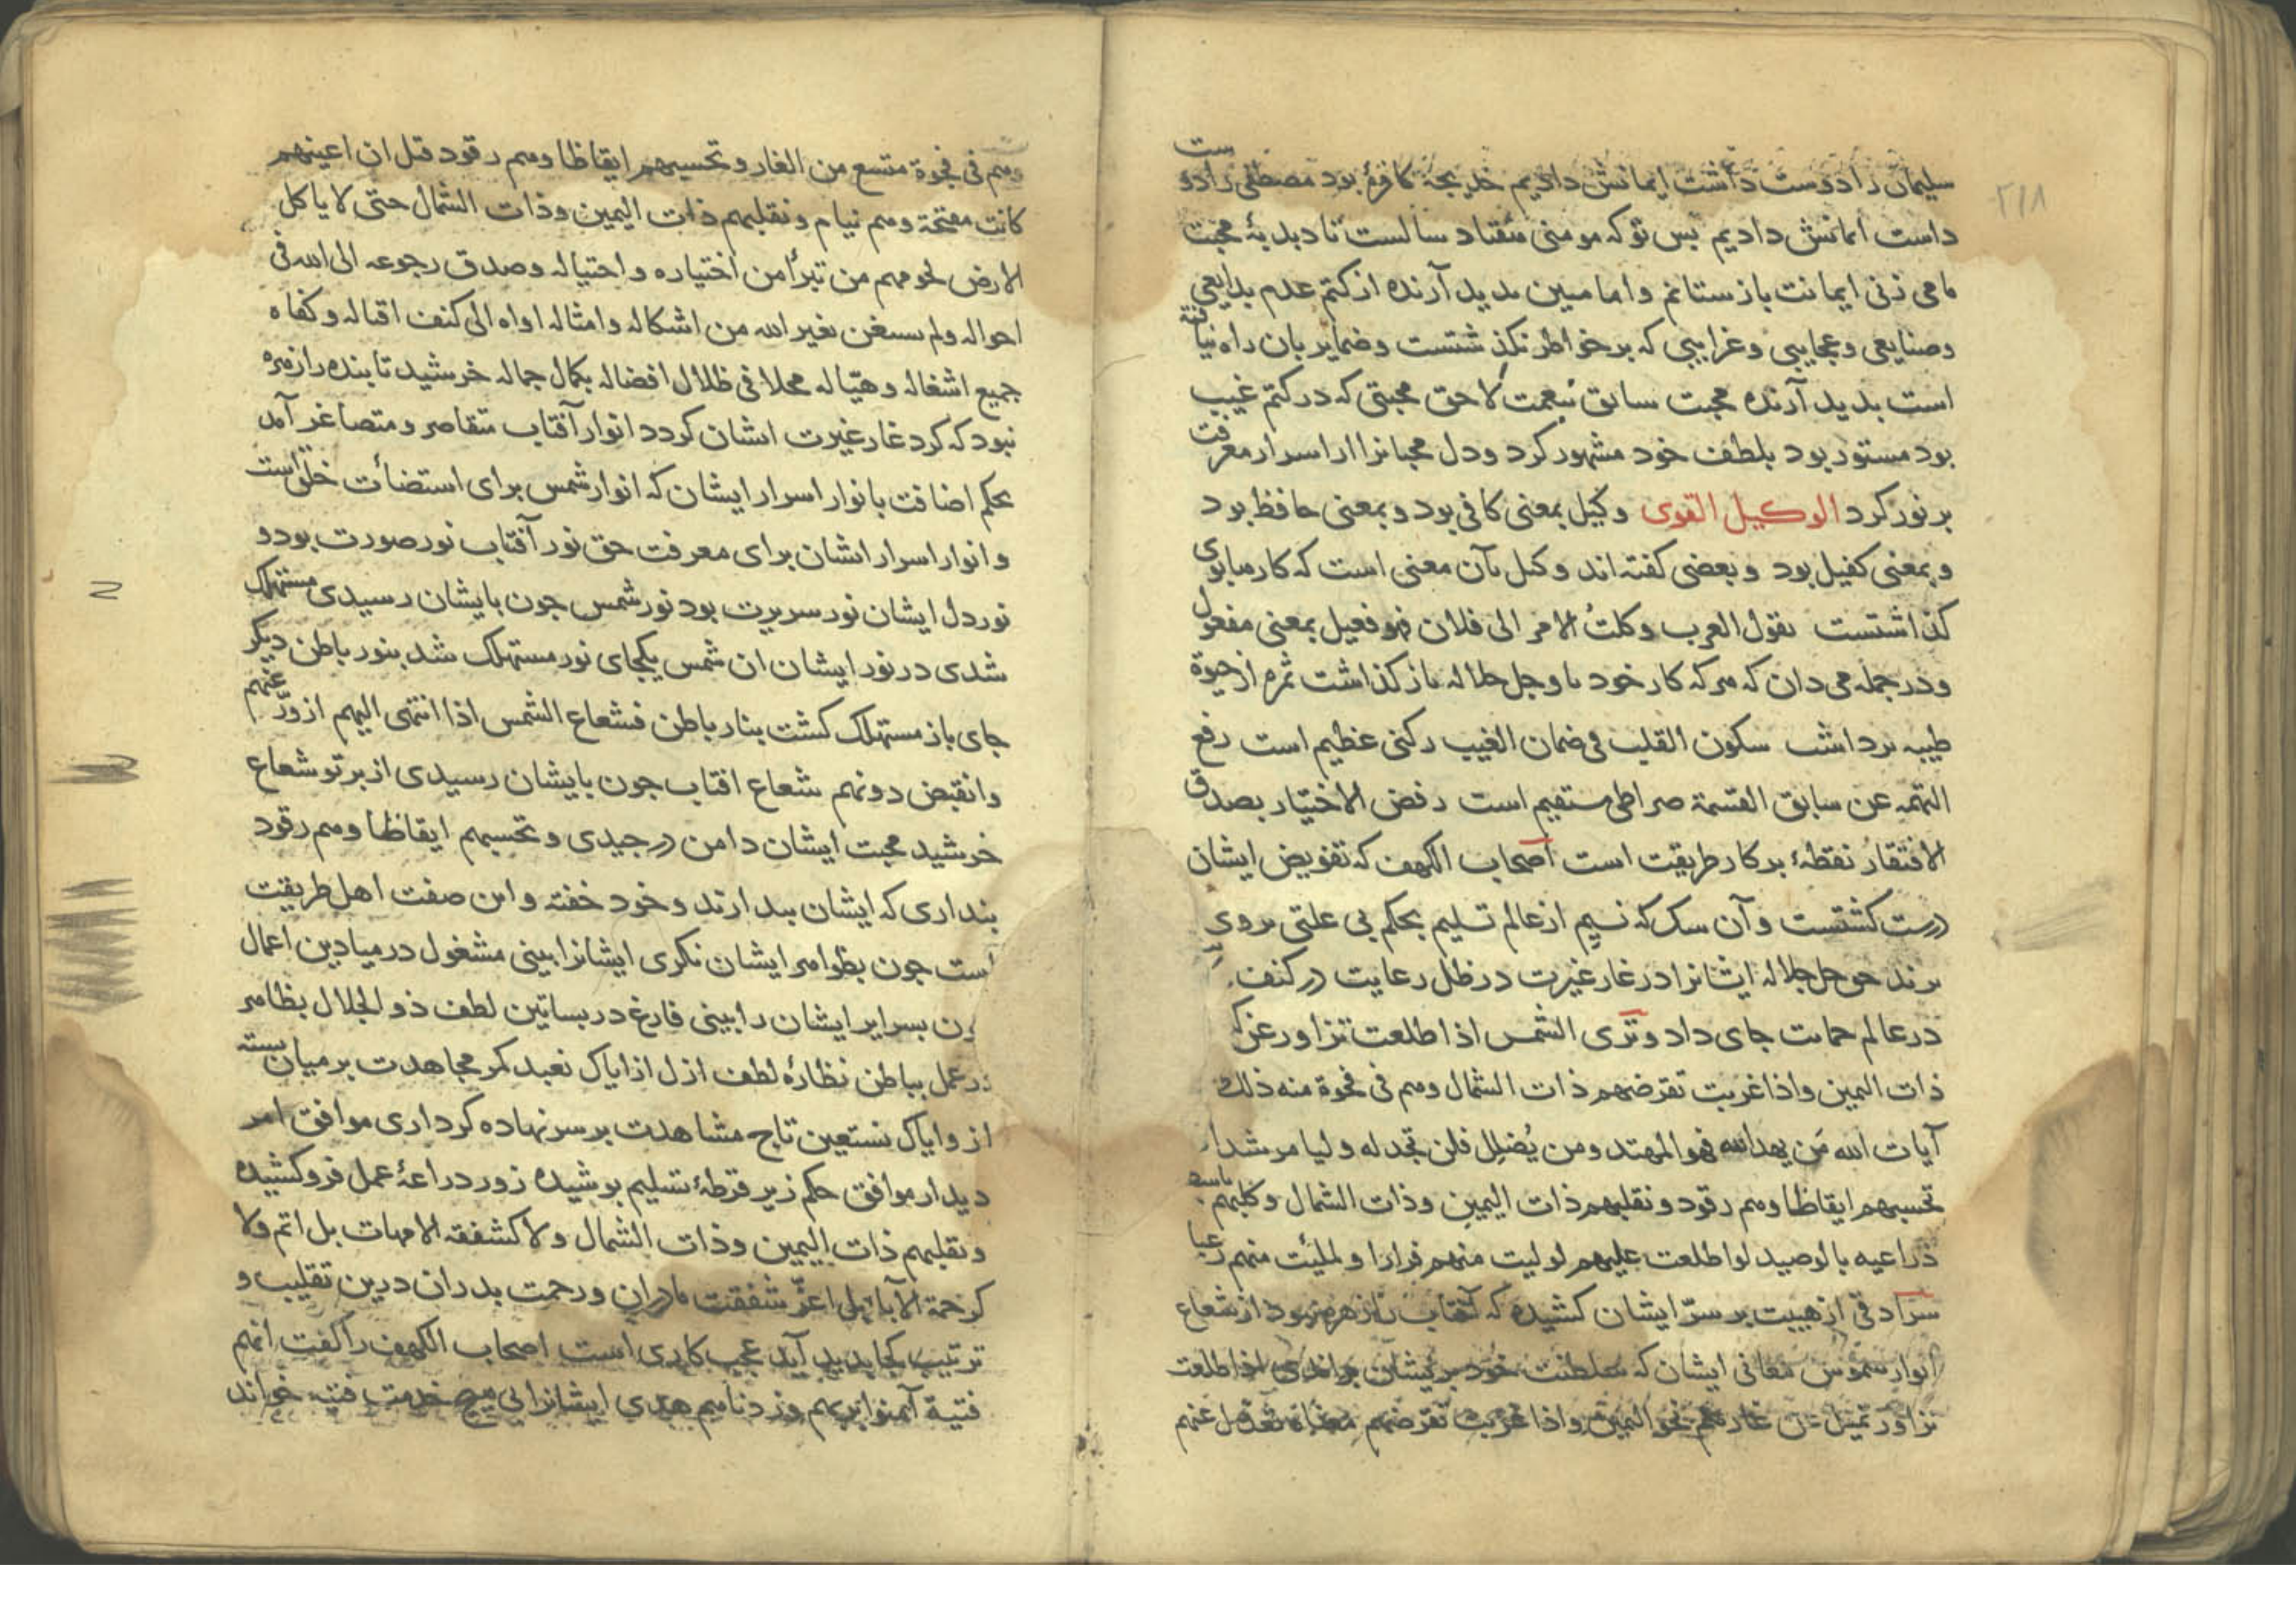 ٢١٨
سلیمان را دوست داشت ایمانش دادیم خدیجة کافرۀ بود مصطفی را دو ست
داست امانش دادیم بس تو که مومنی هفتاد سالست تا دبدبۀ محبت
ما می زنی ایمانت باز ستانم واما مبین بدید آرنده از کتم عدم بدایعی
وصنایعی وعجایبی وغرایبی که بر خواطر نکذشتست وضمایر بان راه نیافته
است بدید آرنده محبت سابق بنعمت لاحق محبتی که در کتم غیب
بود مستور بود بلطف خود مشهور کرد ودل محبانرا از اسرار معرفت
بر نور کرد الوکیل القوی وکیل بمعنی کافی بود وبمعنی حافظ بود
وبمعنی کفیل بود وبعضی کفته اند وکیل بآن معنی است که کارها بوی
کذاشتست یقول العرب وکلتُ الامر الی فلان فهو فعیل بمعنی مفعول
ودر جمله می دان که هر که کار خود با وجل جلاله باز کذاشت ثمرهٔ از حیوة
طیبه برداشت سکون القلب فی ضمان الغیب رکنی عظیم است رفع
التهمة عن سابق القسمة صراطی مستقیم است رفض الاختیار بصدق
الافتقار نقطۀ برکار طریقت است اصحاب الکهف که تفویض ایشان
درست کشتست وآن سک که نسیم از عالم تسلیم بحکم بی علتی بر وی
بزند حق جل جلاله ایشانرا در غار غیرت در ظل رعایت در کنف
در عالم حمایت جای داد وتری الشمس اذا طلعت تزاور عن کهفهم
ذات الیمین واذا غربت تقرضهم ذات الشمال وهم فی فجوة منه ذلک
آیات الله من یهد الله فهو المهتد ومن یُضلِل فلن تجد له ولیا مرشدا
تحسبهم ایقاظا وهم رقود ونقلبهم ذات الیمین وذات الشمال وکلبهم باسط
ذراعیه بالوصید لو اطلعت علیهم لولیت منهم فرارا ولملئت منهم رعبا
سرادقی از هیبت بر سرّ ایشان کشیده که آفتاب را زهره نبود از شعاع
انوار شموس معانی ایشان که سلطنت خود بریشان براندی اذا طلعت
تزاور تمیل عن غارهم نحو الیمین واذا غربت تقرضهم عنهم
وهم فی فجوة متسع من الغار وتحسبهم ایقاظا وهم رقود قیل ان اعینهم
کانت مفتحة وهم نیام ونقلبهم ذات الیمین وذات الشمال حتی لا یاکل
الارض لحومهم من تبرأ من اختیاره واحتیاله وصدق رجوعه الی الله فی
احواله ولم یستعن بغیر الله من اشکاله وامثاله اواه الی کنف اقباله وکفاه
جمیع اشغاله وهیّا له محلا فی ظلال افضاله بکمال جماله خرشید تابنده را زهره
نبود که کرد غار غیرت ایشان کردد انوار آفتاب متقاصر ومتصاغر آمد
بحکم اضافت بانوار اسرار ایشان که انوار شمس برای استضاءت خلق است
وانوار اسرار ایشان برای معرفت حق نور آفتاب نور صورت بود و
نور دل ایشان نور سریرت بود نور شمس جون بایشان رسیدی مستهلک
شدی در نور ایشان ان شمس یکجای نور مستهلک شد بنور باطن دیکر
جای باز مستهلک کشت بنار باطن فشعاع الشمس اذا انتهی الیهم ازورّ عنهم
وانقبض دونهم شعاع افتاب جون بایشان رسیدی از برتو شعاع
خرشید محبت ایشان دامن در جیدی وتحسبهم ایقاظا وهم رقود
بنداری که ایشان بیدارند وخود خفته واین صفت اهل طریقت
است جون بظواهر ایشان نکری ایشانرا بینی مشغول در میادین اعمال
ون بسرایر ایشان را بینی فارغ در بساتین لطف ذو الجلال بظاهر
در عمل بباطن نظارۀ لطف ازل از ایاک نعبد کمر مجاهدت بر میان بسته
از وایاک نستعین تاج مشاهدت بر سر نهاده کرداری موافق امر
دیدار موافق حکم زیر قرطۀ تسلیم بوشیده زور دراعۀ عمل فرو کشیده
ونقلبهم ذات الیمین وذات الشمال ولا کشفقه الامهات بل اتم ولا
کرحمة الآباء بل اعزّ شفقت مادران ورحمت بدران درین تقلیب و
ترتیب کجا بدید آید عجب کاری است اصحاب الکهف را کفت انهم
فتیة آمنوا بربهم وزدناهم هدی ایشانرا بی هیچ خدمت فتیه خواند